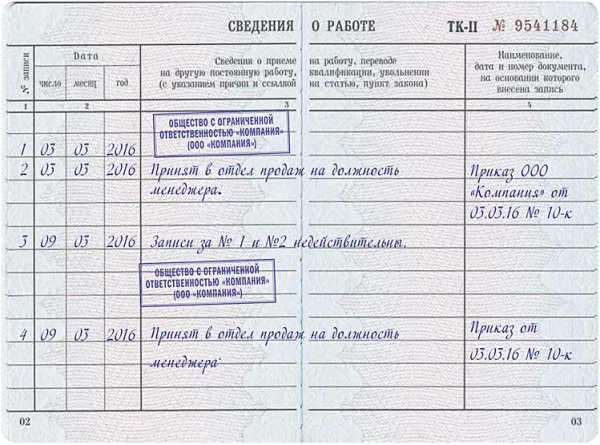 СВЕДЕНИЯ О РАБОТЕ ТК-II № 9541184
№ записи
Дата
число месяц год
Сведения о приеме на работу, переводе
на другую постоянную работу, квалификации, увольнении
(с указанием причин и ссылкой на статью, пункт закона)
Наименование,
дата и номер документа,
на основании которого
внесена запись
1 2 3 4
ОБЩЕСТВО С ОГРАНИЧЕННОЙ
ОТВЕТСТВЕННОСТЬЮ «КОМПАНИЯ»
(ООО «КОМПАНИЯ»)
1 03 03 2016
2 03 03 2016 Принят в отдел продаж на должность Приказ ООО
менеджера. «Компания» от
03.03.16 № 10-к
3 09 03 2016 Записи за № 1 и №2 недействительны.
ОБЩЕСТВО С ОГРАНИЧЕННОЙ
ОТВЕТСТВЕННОСТЬЮ «КОМПАНИЯ»
(ООО «КОМПАНИЯ»)
4 09 03 2016 Принят в отдел продаж на должность Приказ от
менеджера 03.03.16 № 10-к
02 03